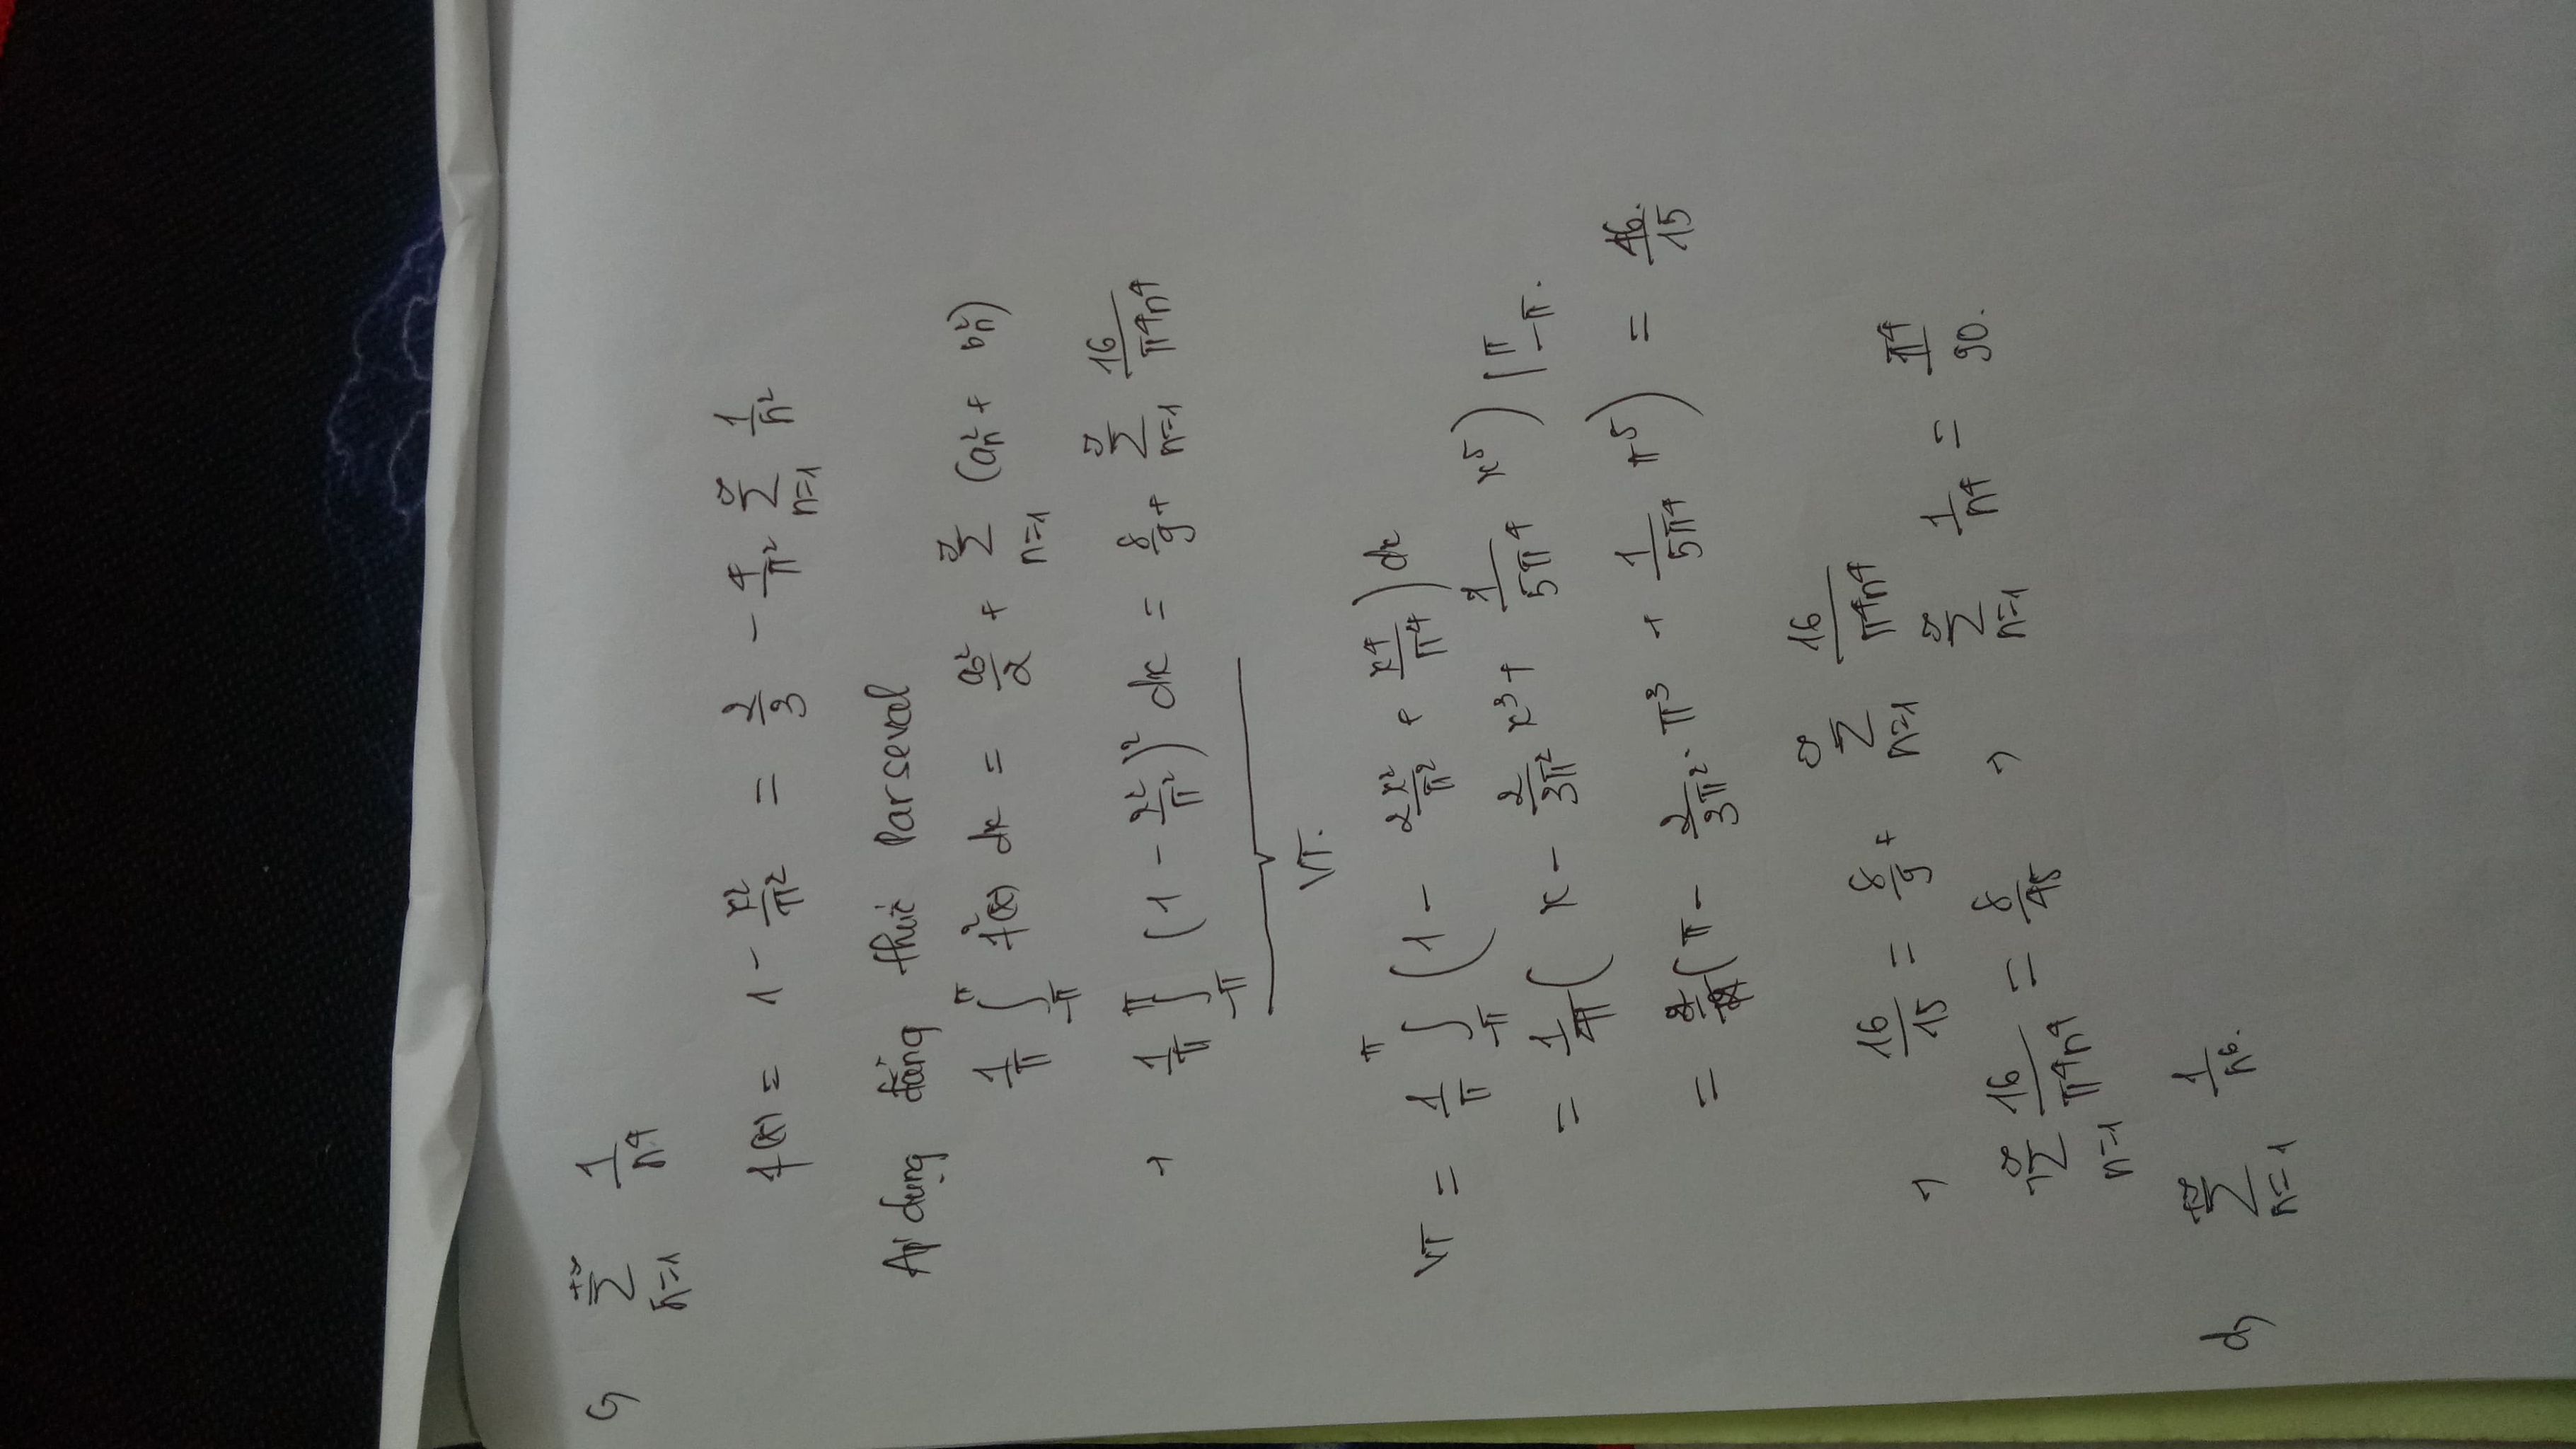 c, +∞ Σ n=1 1/n⁴
f(x) = 1 - x²/π² = 2/3 - 4/π² ∞ Σ n=1 1/n²
Áp dụng đẳng thức Parseval
1/π ∫ π -π f²(x) dx = a₀²/2 + ∞ Σ n=1 (aₙ² + bₙ²)
, 1/π ∫ π -π (1 - x²/π²)² dx = 8/9 + ∞ Σ n=1 16/π⁴n⁴
VT.
VT = 1/π ∫ π -π (1 - 2x²/π² + x⁴/π⁴) dx
= 1/π (x - 2/3π² x³ + 1/5π⁴ x⁵) |π -π.
= (π - 2/3π² · π³ + 1/5π⁴ π⁵) = 16/15.
, 16/15 = 8/9 + ∞ Σ n=1 16/π⁴n⁴
, ∞ Σ n=1 16/π⁴n⁴ = 8/45 , ∞ Σ n=1 1/n⁴ = π⁴/90.
d, +∞ Σ n=1 1/n⁶.